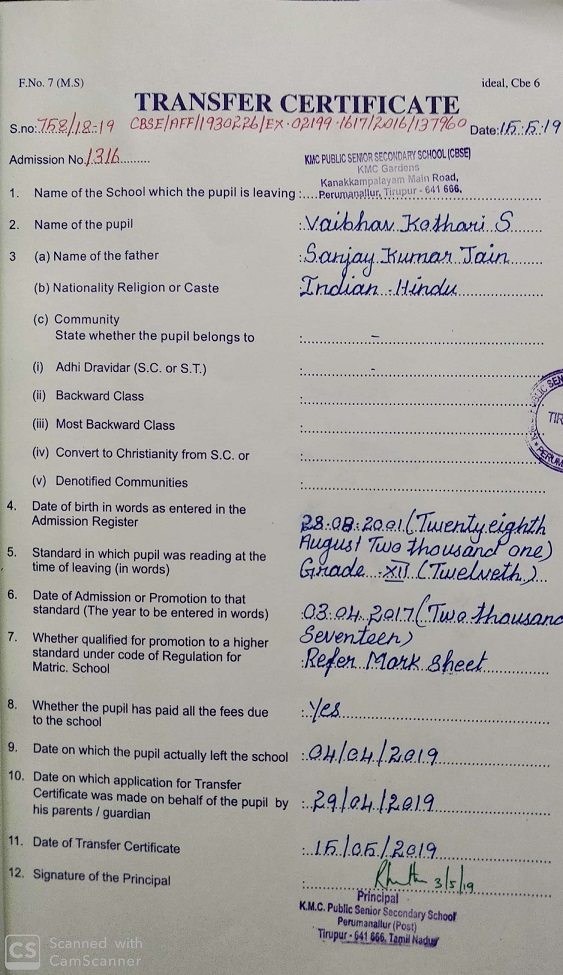 F.No. 7 (M.S) ideal, Cbe 6
TRANSFER CERTIFICATE
S.no: 758/18-19 CBSE/AFF/1930226/EX-02199-1617/2016/137960 Date: 15.5.19
Admission No. 1316
KMC PUBLIC SENIOR SECONDARY SCHOOL (CBSE)
KMC Gardens
Kanakkampalayam Main Road,
1. Name of the School which the pupil is leaving : Perumanallur, Tirupur - 641 666.
2. Name of the pupil : Vaibhav Kothari S
3 (a) Name of the father : Sanjay Kumar Jain
(b) Nationality Religion or Caste : Indian - Hindu
(c) Community
State whether the pupil belongs to : -
(i) Adhi Dravidar (S.C. or S.T.) : -
(ii) Backward Class :
(iii) Most Backward Class :
(iv) Convert to Christianity from S.C. or :
(v) Denotified Communities :
4. Date of birth in words as entered in the
Admission Register : 28.08.2001 (Twenty eighth
August Two thousand one)
5. Standard in which pupil was reading at the
time of leaving (in words) : Grade - XII (Twelveth)
6. Date of Admission or Promotion to that
standard (The year to be entered in words) : 03.04.2017 (Two thousand
Seventeen)
7. Whether qualified for promotion to a higher
standard under code of Regulation for
Matric. School : Refer Mark sheet
8. Whether the pupil has paid all the fees due
to the school : Yes
9. Date on which the pupil actually left the school : 04/04/2019
10. Date on which application for Transfer
Certificate was made on behalf of the pupil by : 29/04/2019
his parents / guardian
11. Date of Transfer Certificate : 15/05/2019
12. Signature of the Principal : 3/5/19
Principal
K.M.C. Public Senior Secondary School
Perumanallur (Post)
Tirupur - 641 666. Tamil Nadu
CS Scanned with
CamScanner